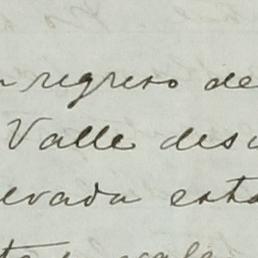 regreso de
Valle des
evada esta